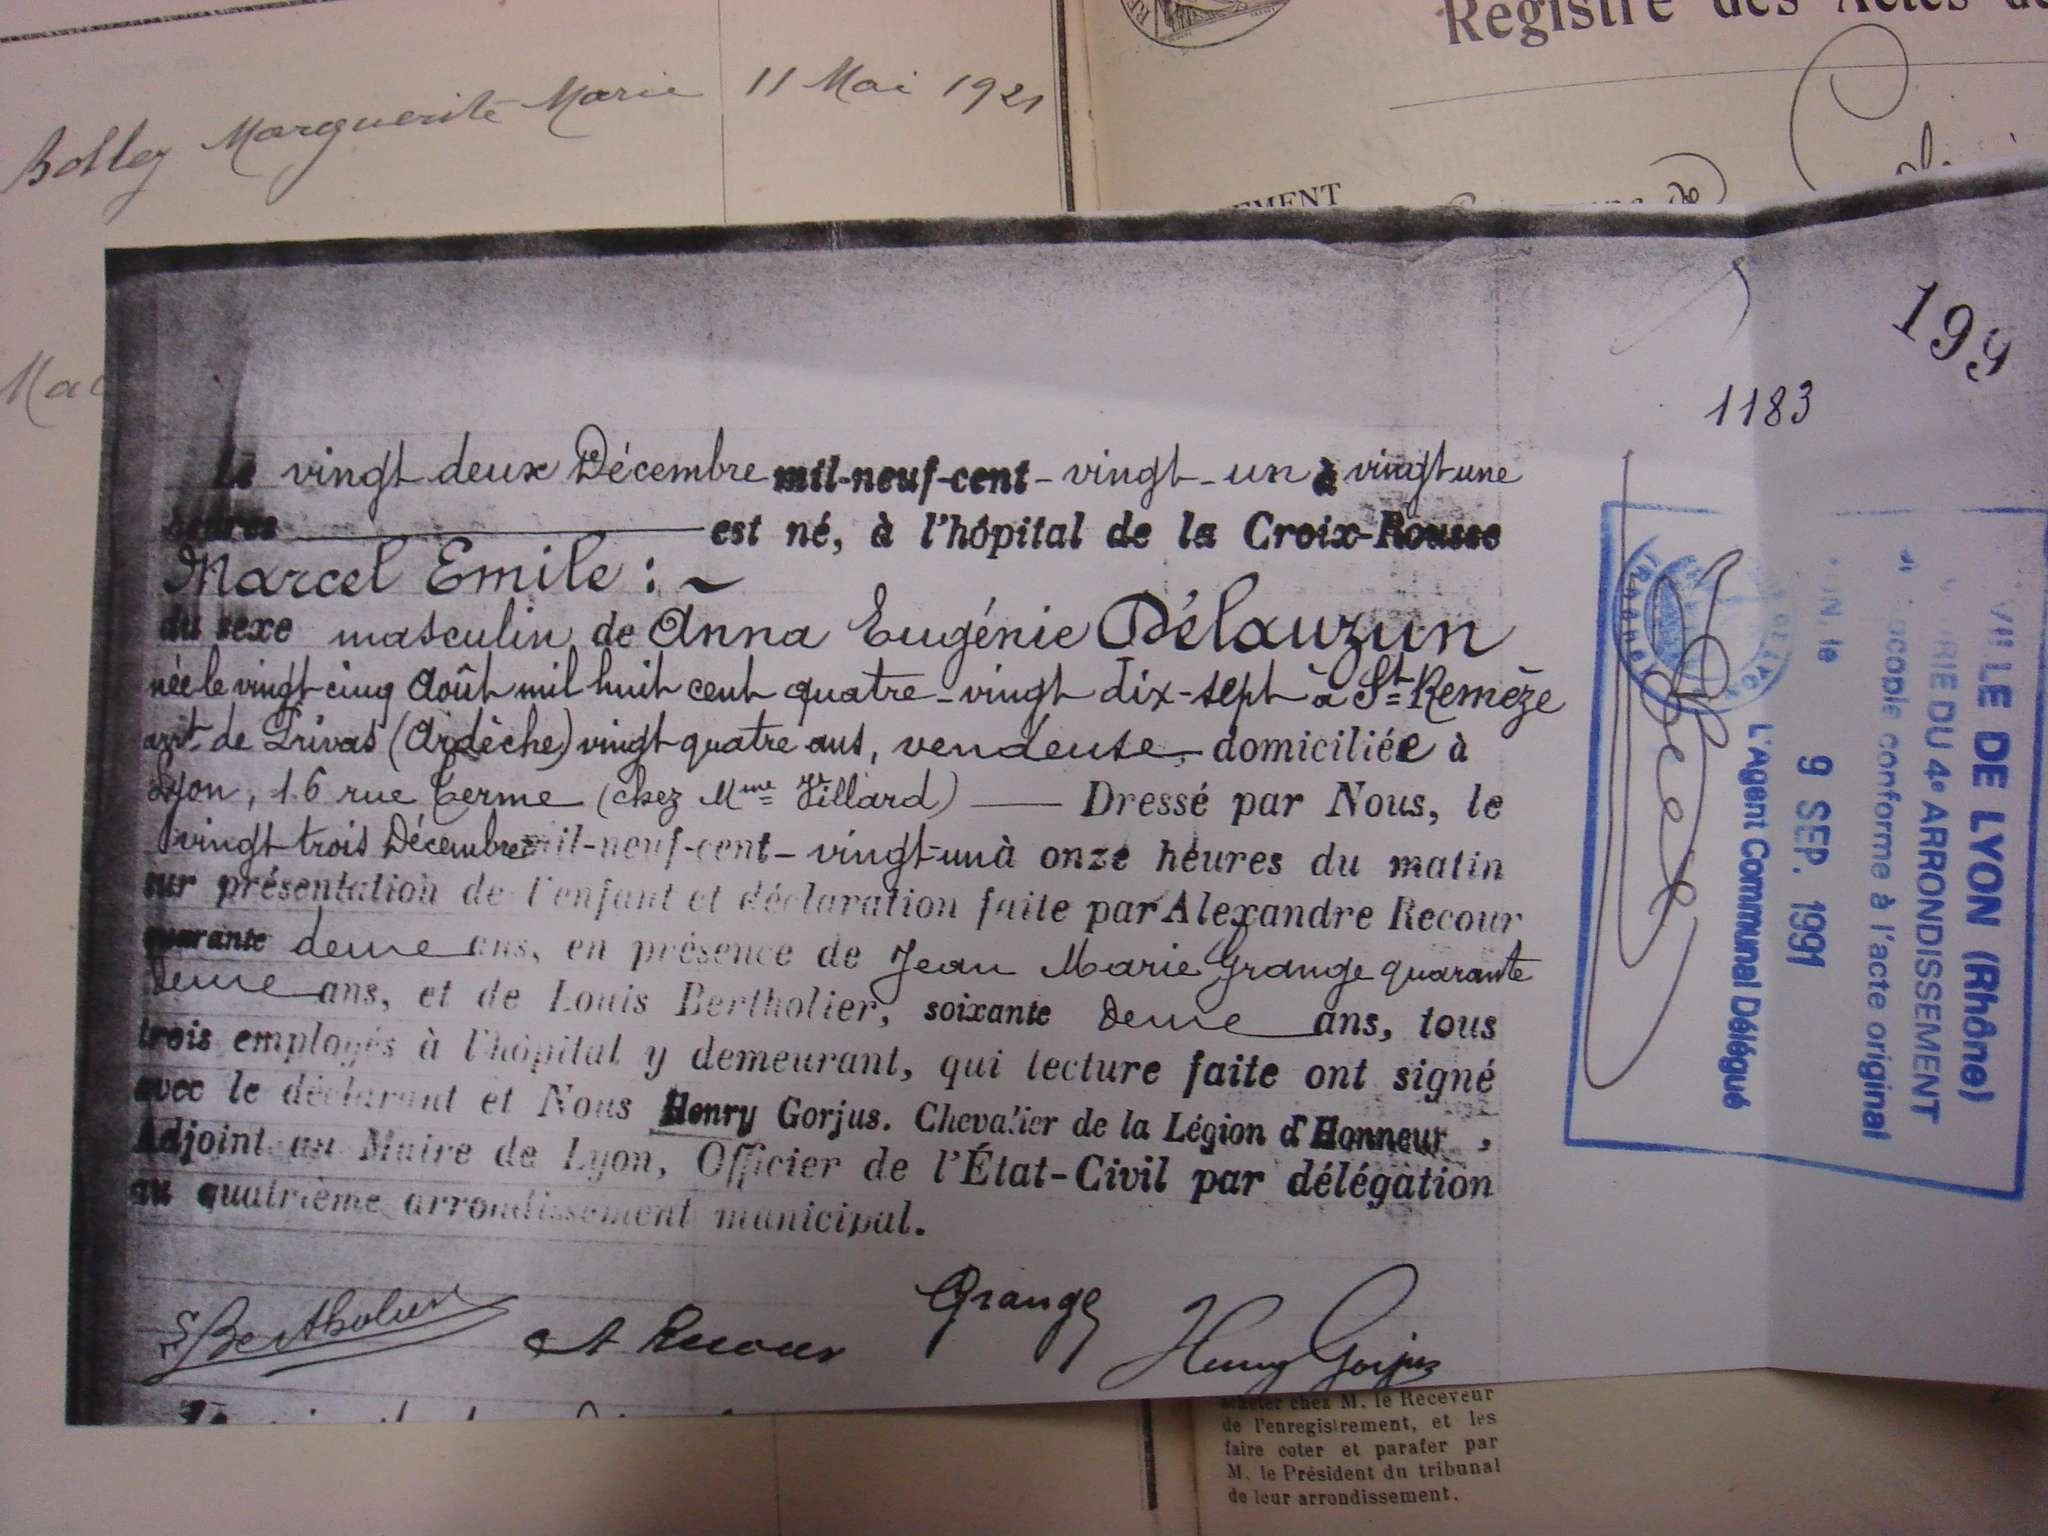 Registre des Actes de
Bolley Marguerite Marie 11 Mai 1921
EMENT
199
1183
Le vingt deux Décembre mil-neuf-cent-vingt-un à vingt une
heures est né, à l'hôpital de la Croix-Rousse
Marcel Emile :
du sexe masculin, de Anna Eugénie Délauzun
née le vingt cinq Août mil huit cent quatre-vingt dix-sept à St Remèze
arrt de Privas (Ardèche) vingt quatre ans, vendeuse, domiciliée à
Lyon, 16 rue Terme (chez Mme Villard) — Dressé par Nous, le
vingt trois Décembre mil-neuf-cent-vingt-un à onze heures du matin
sur présentation de l'enfant et déclaration faite par Alexandre Recour
quarante deux ans, en présence de Jean Marie Grange quarante
deux ans, et de Louis Bertholier, soixante deux ans, tous
trois employés à l'hôpital y demeurant, qui lecture faite ont signé
avec le déclarant et Nous Henry Gorjus. Chevalier de la Légion d'Honneur,
Adjoint au Maire de Lyon, Officier de l'État-Civil par délégation
au quatrième arrondissement municipal.
Bertholier
A Recour
Grange
Henry Gorjus
VILLE DE LYON (Rhône)
MAIRIE DU 4e ARRONDISSEMENT
Photocopie conforme à l'acte original
LYON, le 9 SEP. 1991
L'Agent Communal Délégué
acheter chez M. le Receveur
de l'enregistrement, et les
faire coter et parafer par
M. le Président du tribunal
de leur arrondissement.